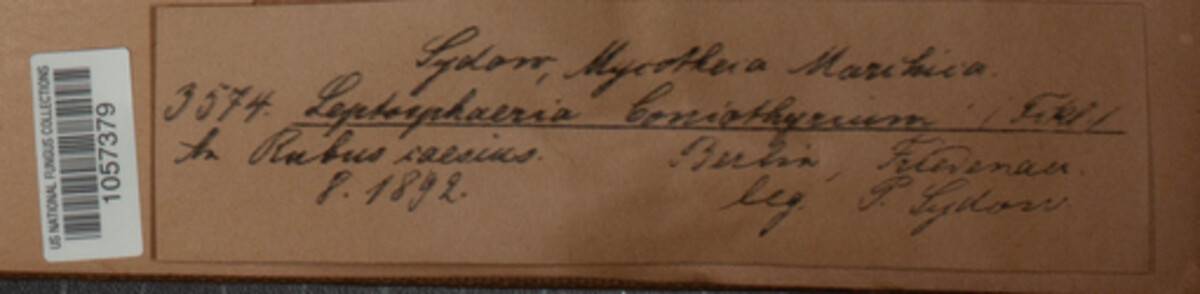 US NATIONAL FUNGUS COLLECTIONS
1057379
Sydow, Mycotheca Marchica.
3574. Leptosphaeria Coniothyrium (Fckl.)
An Rubus caesius. Berlin, Friedenau.
8. 1892. leg. P. Sydow.